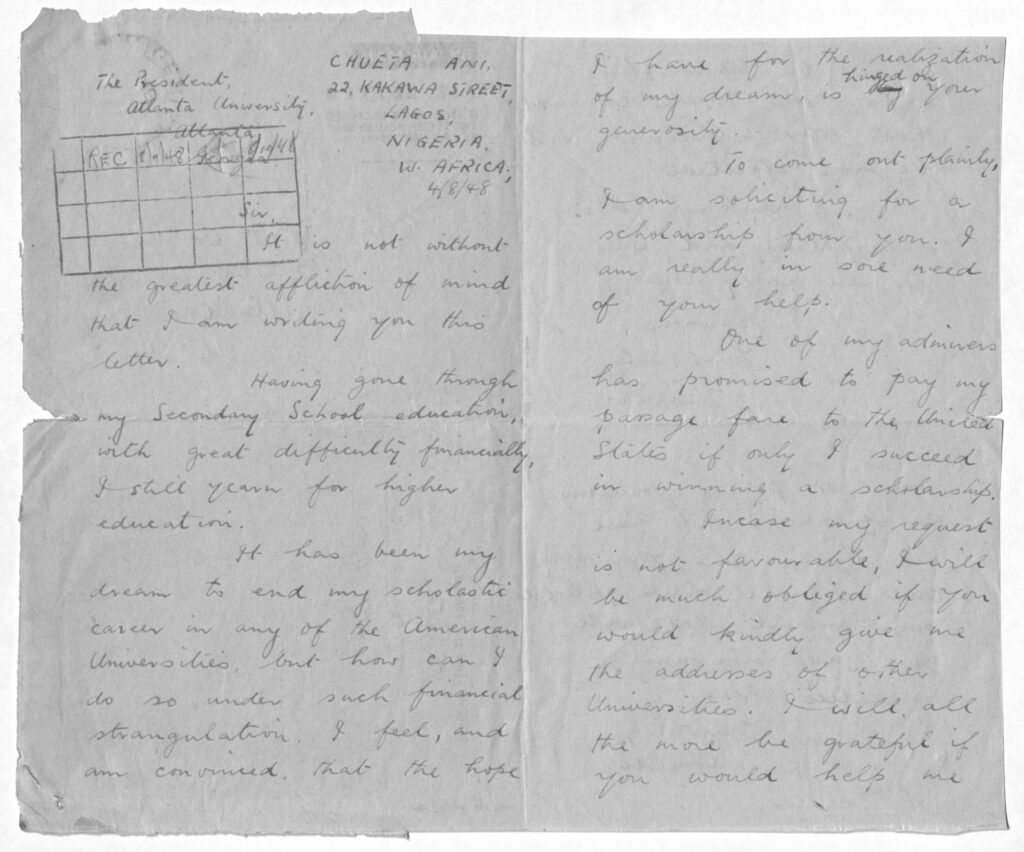 CHUETA ANI,
22, KAKAWA STREET,
LAGOS,
NIGERIA,
W. AFRICA,
4/8/48
The President,
Atlanta University,
Atlanta,
Georgia
REC 8/9/48
Sir,
It is not without
the greatest affliction of mind
that I am writing you this
letter.
Having gone through
my Secondary School education,
with great difficulty financially,
I still yearn for higher
education.
It has been my
dream to end my scholastic
career in any of the American
Universities, but how can I
do so under such financial
strangulation. I feel, and
am convinced, that the hope
I have for the realization
of my dream, is hinged on your
generosity.
To come out plainly,
I am soliciting for a
scholarship from you. I
am really in sore need
of your help.
One of my admirers
has promised to pay my
passage fare to the United
States if only I succeed
in winning a scholarship.
Incase my request
is not favourable, I will
be much obliged if you
would kindly give me
the addresses of other
Universities. I will, all
the more be grateful if
you would help me